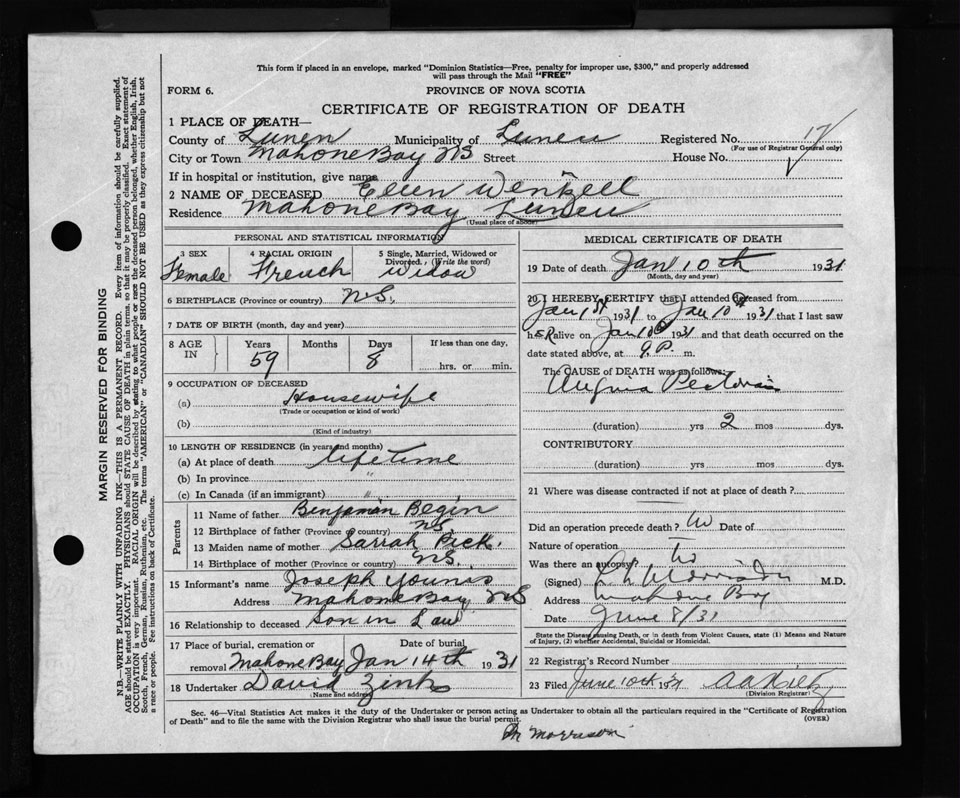 This form if placed in an envelope, marked "Dominion Statistics—Free, penalty for improper use, $300," and properly addressed
will pass through the Mail "FREE"
FORM 6. PROVINCE OF NOVA SCOTIA
CERTIFICATE OF REGISTRATION OF DEATH
1 PLACE OF DEATH—
County of Lunen Municipality of Lunen Registered No. 17
(For use of Registrar General only)
City or Town Mahone Bay NS Street House No.
If in hospital or institution, give name
2 NAME OF DECEASED Ellen Wentzell
Residence Mahone Bay Lunen
(Usual place of abode)
PERSONAL AND STATISTICAL INFORMATION
3 SEX Female
4 RACIAL ORIGIN French
5 Single, Married, Widowed or Divorced, (Write the word) Widow
6 BIRTHPLACE (Province or country) N.S.
7 DATE OF BIRTH (month, day and year)
8 AGE IN Years 59 Months Days 8 If less than one day, hrs. or min.
9 OCCUPATION OF DECEASED
(a) Housewife
(Trade or occupation or kind of work)
(b)
(Kind of industry)
10 LENGTH OF RESIDENCE (in years and months)
(a) At place of death lifetime
(b) In province "
(c) In Canada (if an immigrant) "
Parents
11 Name of father Benjaman Begin
12 Birthplace of father (Province or country) N.S.
13 Maiden name of mother Sarrah Peck.
14 Birthplace of mother (Province or country) N.S.
15 Informant's name Joseph Younis
Address Mahone Bay NS
16 Relationship to deceased Son in Law
17 Place of burial, cremation or removal Mahone Bay Date of burial Jan 14th 1931
18 Undertaker David Zinks
(Name and address)
MEDICAL CERTIFICATE OF DEATH
19 Date of death Jan 10th 1931
(Month, day and year)
20 I HEREBY CERTIFY that I attended deceased from
Jan 1st 1931 to Jan 10th 1931 that I last saw
h ER alive on Jan 10th 1931 and that death occurred on
date stated above, at 9 P. m.
The CAUSE of DEATH was as follows:
Angina Pectoris
(duration) yrs 2 mos dys.
CONTRIBUTORY
(duration) yrs mos dys.
21 Where was disease contracted if not at place of death?
Did an operation precede death? No Date of
Nature of operation
Was there an autopsy? No
(Signed) Morrison M.D.
Address Mahone Bay
Date June 8/31
State the Disease causing Death, or in death from Violent Causes, state (1) Means and Nature
of Injury, (2) whether Accidental, Suicidal or Homicidal.
22 Registrar's Record Number
23 Filed June 10th 1931
(Division Registrar)
Sec. 46—Vital Statistics Act makes it the duty of the Undertaker or person acting as Undertaker to obtain all the particulars required in the "Certificate of Registration
of Death" and to file the same with the Division Registrar who shall issue the burial permit. (OVER)
Dr Morrison
MARGIN RESERVED FOR BINDING
N.B.—WRITE PLAINLY WITH UNFADING INK—THIS IS A PERMANENT RECORD. Every item of information should be carefully supplied.
AGE should be stated EXACTLY. PHYSICIANS should STATE CAUSE OF DEATH in plain terms, so that it may be properly classified. Exact statement of
OCCUPATION is very important. RACIAL ORIGIN will be described by stating to what people or race the deceased person belonged, whether English, Irish,
Scotch, French, German, Russian, Ruthenian, etc. The terms "AMERICAN" or "CANADIAN" SHOULD NOT BE USED as they express citizenship but not
a race or people. See instructions on back of Certificate.